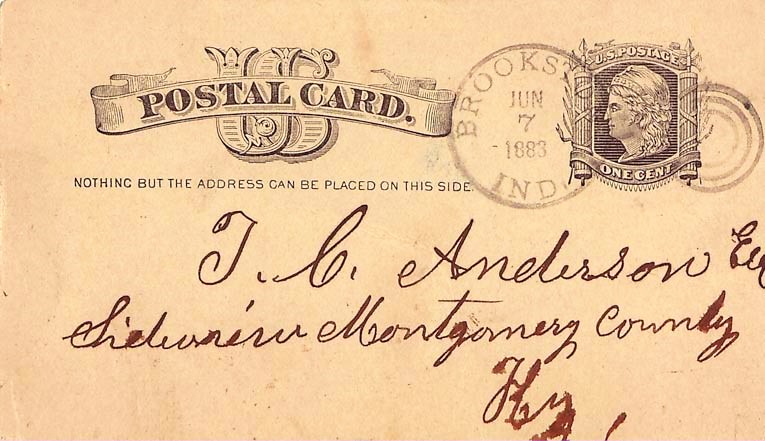 US
POSTAL CARD.
NOTHING BUT THE ADDRESS CAN BE PLACED ON THIS SIDE.
BROOKST
JUN
7
1883
IND.
U.S. POSTAGE
ONE CENT
T. C. Anderson Esq
Sideview Montgomery County
Ky